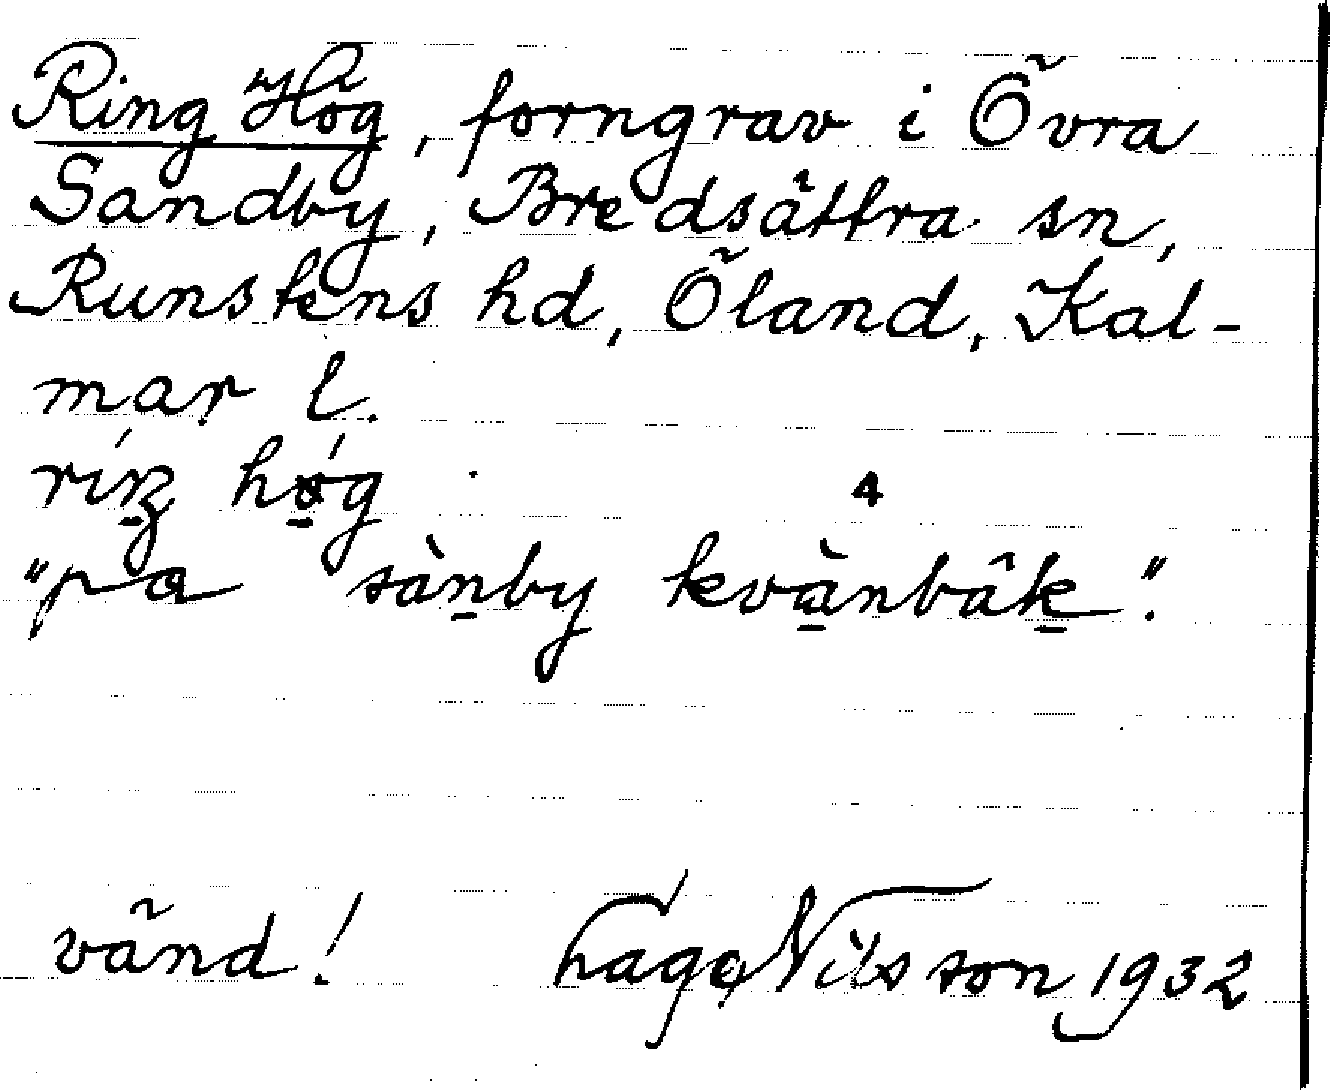 Ring Hög, forngrav i Övra
Sandby, Bredsättra sn,
Runstens hd, Öland, Kal-
mar l.
"pa sànby kvànbâk".
vänd! Tage Nilsson 1932